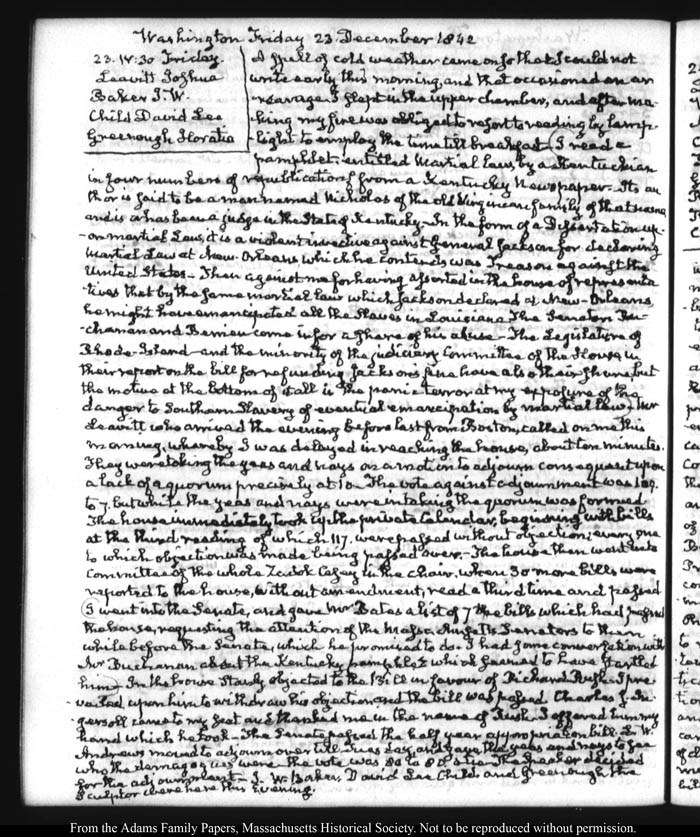 Washington Friday 23. December 1842
23. IV:30 Friday.
Leavitt Joshua
Baker J. W.
Child David Lee
Greenough Horatio
A spell of cold weather came on so that I could not
write early this morning, and that occasioned an ar-
rearage. I slept in the upper chamber, and after ma-
king my fire was obliged to resort to reading by lamp-
light to employ the time till breakfast. I read a
pamphlet entitled Martial law, by a Kentuckian
in four numbers of republication from a Kentucky Newspaper. Its au
thor is said to be a man named Nicholas of the old Virginian family of that name
and is or has been a judge in the State of Kentucky. In the form of a Dissertation up-
-on martial Law, it is a violent invective against General Jackson for declaring
Martial Law at New-Orleans which he contends was Treason against the
United States. Then against me for having asserted in the house of representa
-tives that by the same martial law which Jackson declared at New-Orleans,
he might have emancipated all the slaves in Louisiana. The Senators Bu-
-chanan and Berrien come in for a share of his abuse. The Legislature of
Rhode-Island and the minority of the judiciary Committee of the House, in
their report on the bill for refunding Jackson's fine have also their share, but
the motive at the bottom of it all is the panic terror at my exposure of the
danger to Southern Slavery of eventual emancipation by martial law. Mr
Leavitt who arrived the evening before last from Boston, called on me this
morning, whereby I was delayed in reaching the house, about ten minutes.
They were taking the yeas and nays on a motion to adjourn consequent upon
a lack of a quorum precisely at 10. The vote against adjournment was 109.
to 7. but while the yeas and nays were in taking the quorum was formed
The house immediately took up the private Calendar, beginning with bills
at the third reading of which 117. were passed without objection; every one
to which objection was made being passed over. The house then went into
Committee of the whole Zadok Casey in the chair, when 30 more bills were
reported to the house, without amendment, read a third time and passed
I went into the Senate, and gave Mr Bates a list of 7 the bills which had passed
the house, requesting the attention of the Massachusetts Senators to them
while before the Senate, which he promised to do. I had some conversation with
Mr Buchanan about the Kentucky pamphlet which seemed to have startled
him. In the house Stanly objected to the Bill in favour of Richard Rush. I pre
-vailed upon him to withdraw his objection and the bill was passed. Charles J. In-
gersoll came to my seat and thanked me in the name of Rush. I offered him my
hand which he took. The Senate passed the half year appropriation bill. L. W.
Andrews moved to adjourn over till Tuesday, and gave the yeas and nays to see
who the demagogues were the vote was 80 to 80 a tie. The Speaker decided
for the adjournment. J. W. Baker, David Lee Child and Greenough the
Sculptor were here this evening.
From the Adams Family Papers, Massachusetts Historical Society. Not to be reproduced without permission.